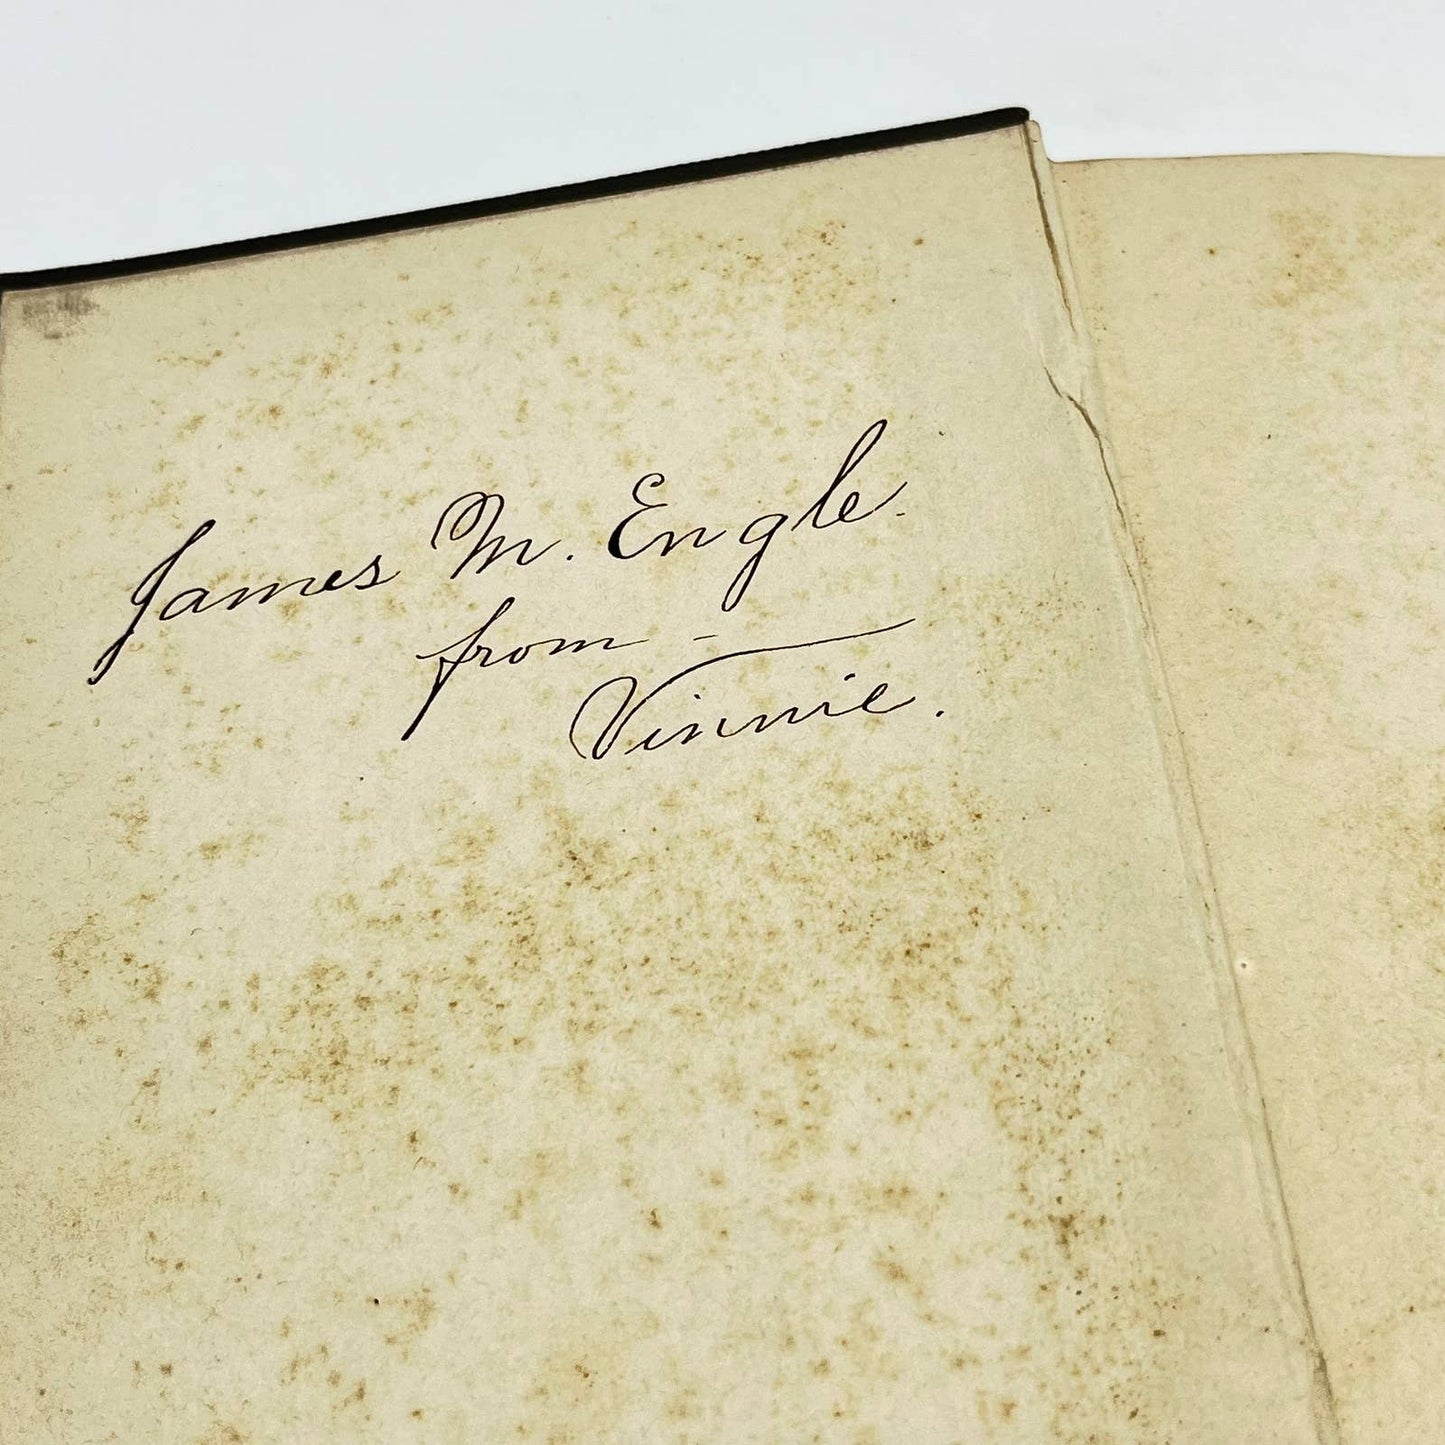 James M. Engle.
from -
Vinnie.